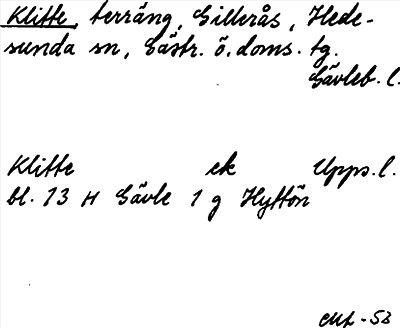 Klitte, terräng, Gillerås, Hede-
sunda sn, Gästr. ö. doms. tg.
Gävleb. l.
Klitte ek Upps. l.
bl. 13 H Gävle 1 g Hyttön